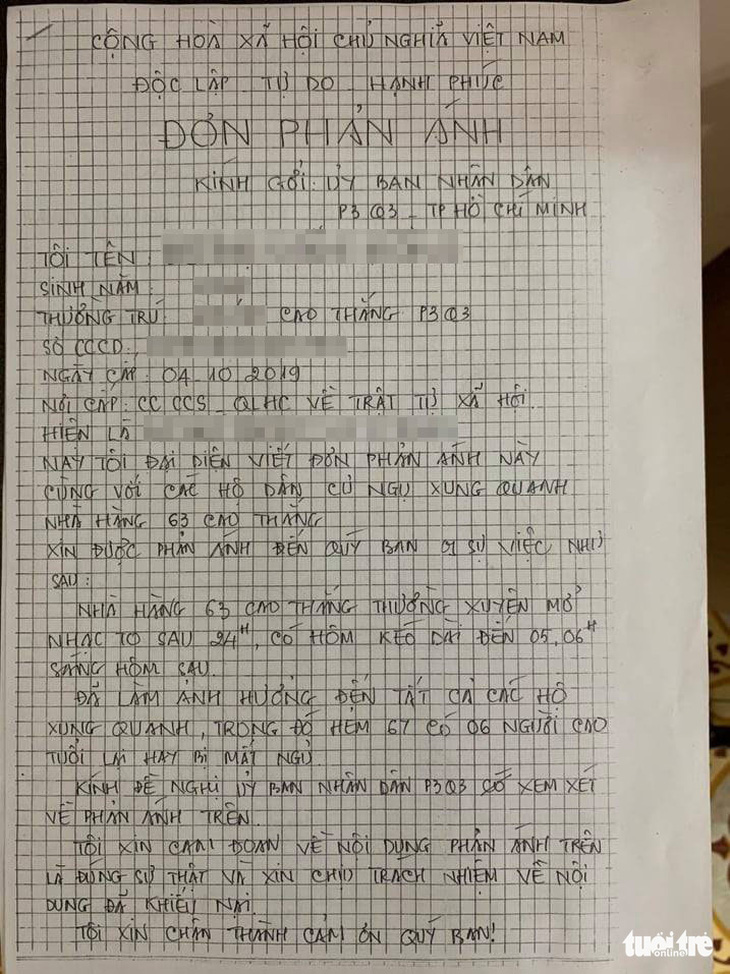 CỘNG HOÀ XÃ HỘI CHỦ NGHĨA VIỆT NAM
ĐỘC LẬP _ TỰ DO _ HẠNH PHÚC
ĐƠN PHẢN ÁNH
KÍNH GỞI: ỦY BAN NHÂN DÂN
P3 Q3 _ TP HỒ CHÍ MINH
TÔI TÊN :
SINH NĂM :
THƯỜNG TRÚ: CAO THẮNG P3Q3
SỐ CCCD :
NGÀY CẤP : 04_10_2019
NƠI CẤP : CC CCS_QLHC VỀ TRẬT TỰ XÃ HỘI
HIỆN LÀ
NAY TÔI ĐẠI DIỆN VIẾT ĐƠN PHẢN ÁNH NÀY
CÙNG VỚI CÁC HỘ DÂN CƯ NGỤ XUNG QUANH
NHÀ HÀNG 63 CAO THẮNG
XIN ĐƯỢC PHẢN ÁNH ĐẾN QUÝ BAN 01 SỰ VIỆC NHƯ
SAU :
NHÀ HÀNG 63 CAO THẮNG THƯỜNG XUYÊN MỞ
NHẠC TO SAU 24H, CÓ HÔM KÉO DÀI ĐẾN 05,06H
SÁNG HÔM SAU.
ĐÃ LÀM ẢNH HƯỞNG ĐẾN TẤT CẢ CÁC HỘ
XUNG QUANH, TRONG ĐÓ HẺM 67 CÓ 06 NGƯỜI CAO
TUỔI LẠI HAY BỊ MẤT NGỦ
KÍNH ĐỀ NGHỊ ỦY BAN NHÂN DÂN P3Q3 CÓ XEM XÉT
VỀ PHẢN ÁNH TRÊN.
TÔI XIN CAM ĐOAN VỀ NỘI DUNG PHẢN ÁNH TRÊN
LÀ ĐÚNG SỰ THẬT VÀ XIN CHỊU TRÁCH NHIỆM VỀ NỘI
DUNG ĐÃ KHIẾU NẠI.
TÔI XIN CHÂN THÀNH CẢM ƠN QUÝ BAN!
tuổi trẻ
online